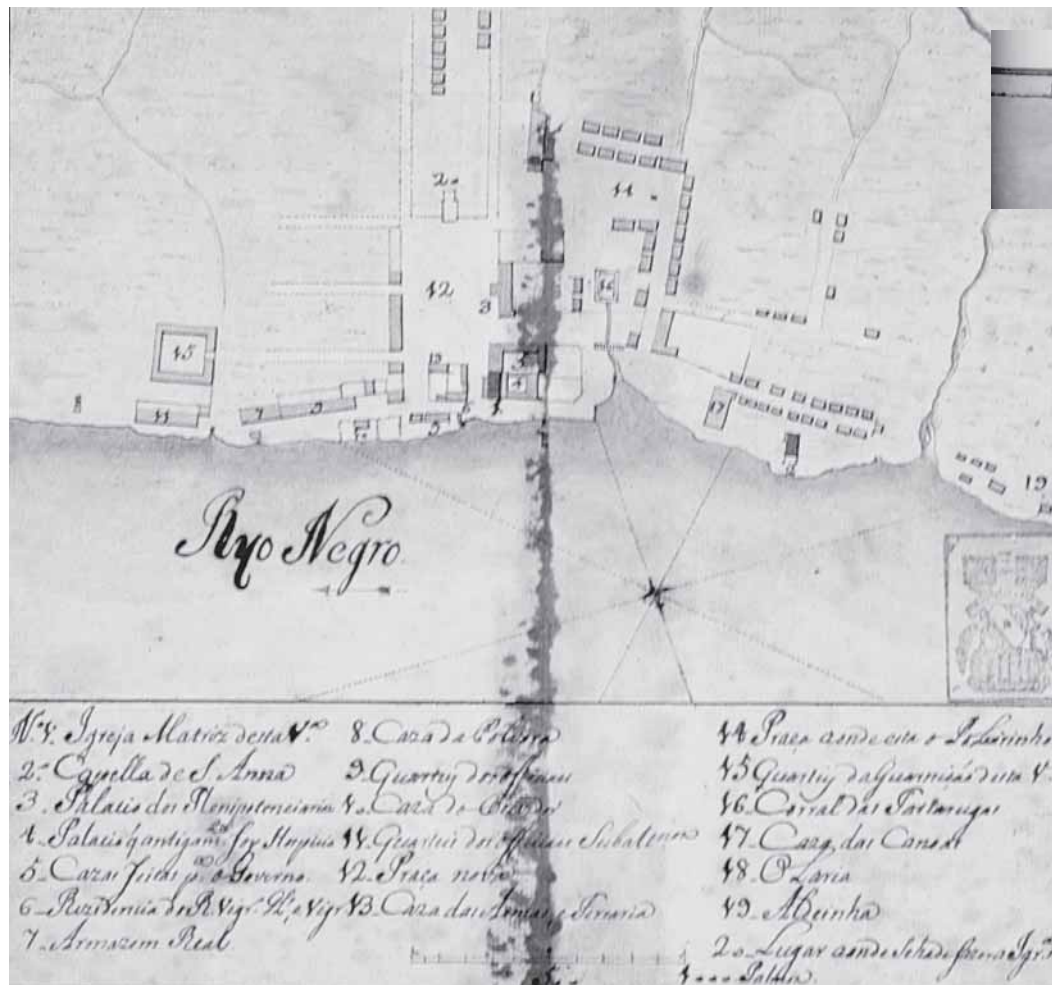 2.
14
12
3
16
15
13
8
11
7
9
5
17
19
Ryo Negro.
Nº1. Igreja Matriz desta Vª
2. Capella de S. Anna
3. Palacio dos Plenipotenciarios
4. Palacio q antigam.te foy Hospicio
5. Cazas feitas pª o Governo.
6. Rezidencia do R. Vigr. Gl. e Vigr
7. Armazem Real
8. Caza da Polvora
9. Quarteis dos officiaes
10. Caza do
11. Quarteis dos officiaes Subalternos
12. Praça nova
13. Caza das Armas e Ferraria
14 Praça aonde esta o Pelourinho
15 Quarteis da Guarnição desta V
16. Corral das Tartarugas
17. Caza das Canoas
18. OLaria
19. Aldeinha
20. Lugar aonde se ha de fazer a Igrª
Palmos.